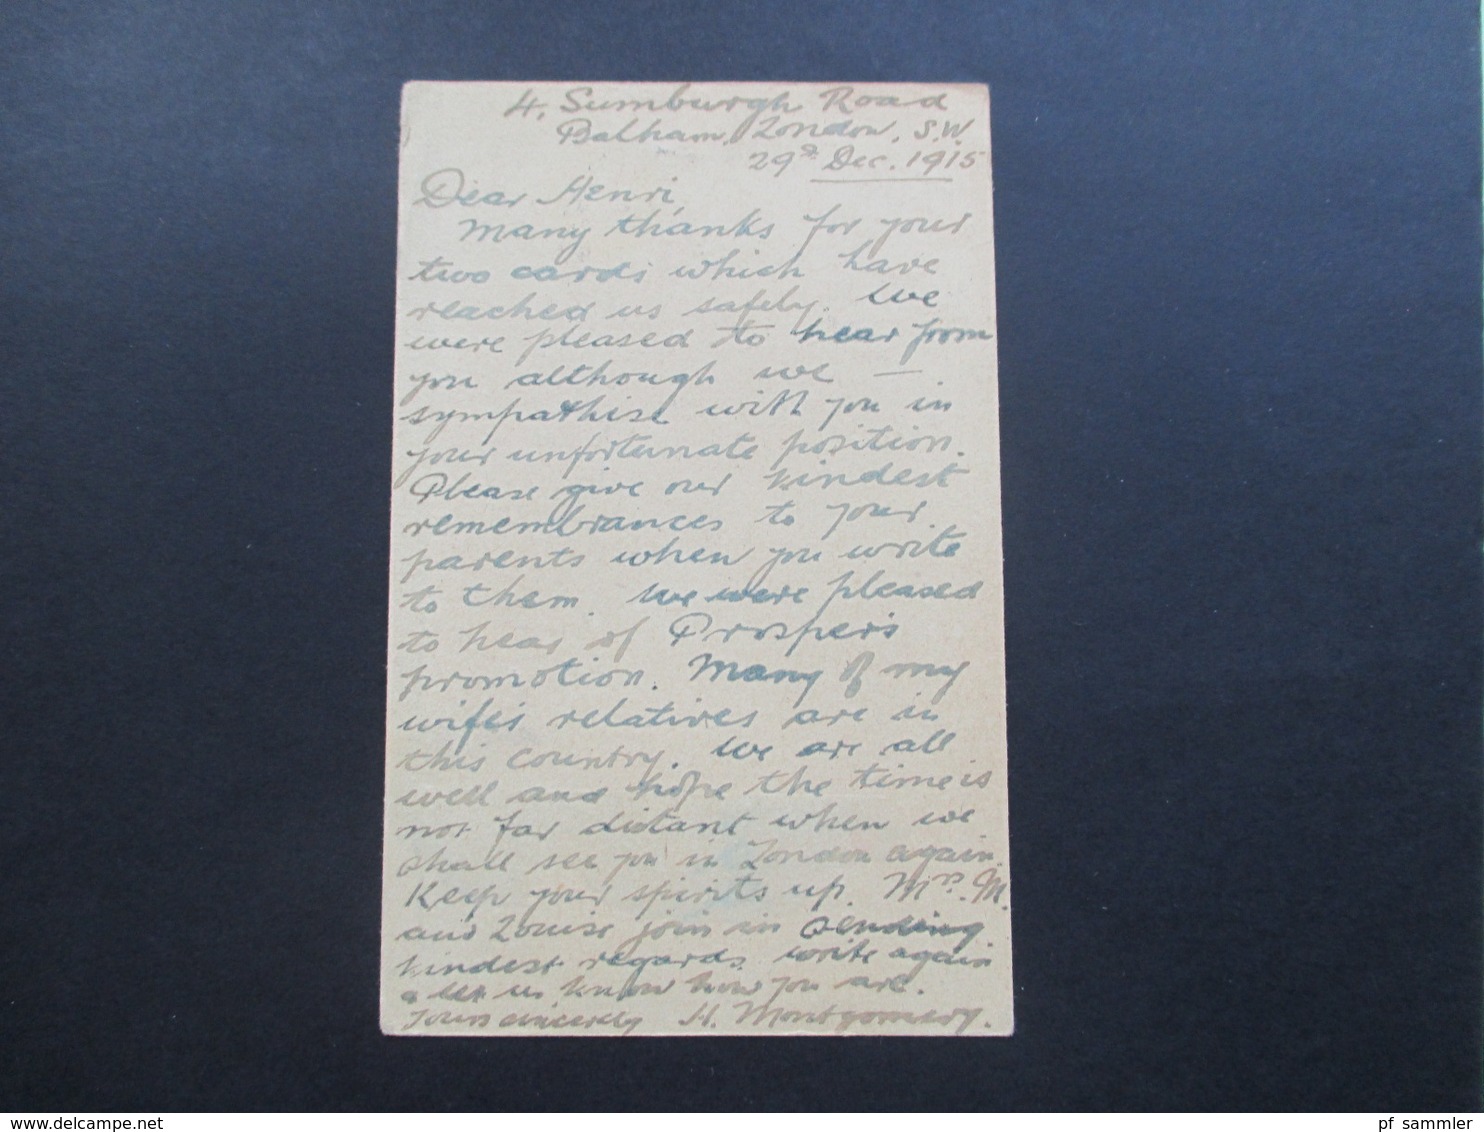 4, Sumburgh Road
Balham, London, S.W.
29th Dec. 1915
Dear Henri,
Many thanks for your
two cards which have
reached us safely. We
were pleased to hear from
you although we —
sympathise with you in
your unfortunate position.
Please give our kindest
remembrances to your
parents when you write
to them. We were pleased
to hear of Prosper's
promotion. Many of my
wife's relatives are in
this country. We are all
well and hope the time is
not far distant when we
shall see you in London again.
Keep your spirits up. Mrs. M.
and Louise join in sending
kindest regards. Write again
& let us know how you are.
Yours sincerely H. Montgomery.
www.delcampe.net
pf_sammler